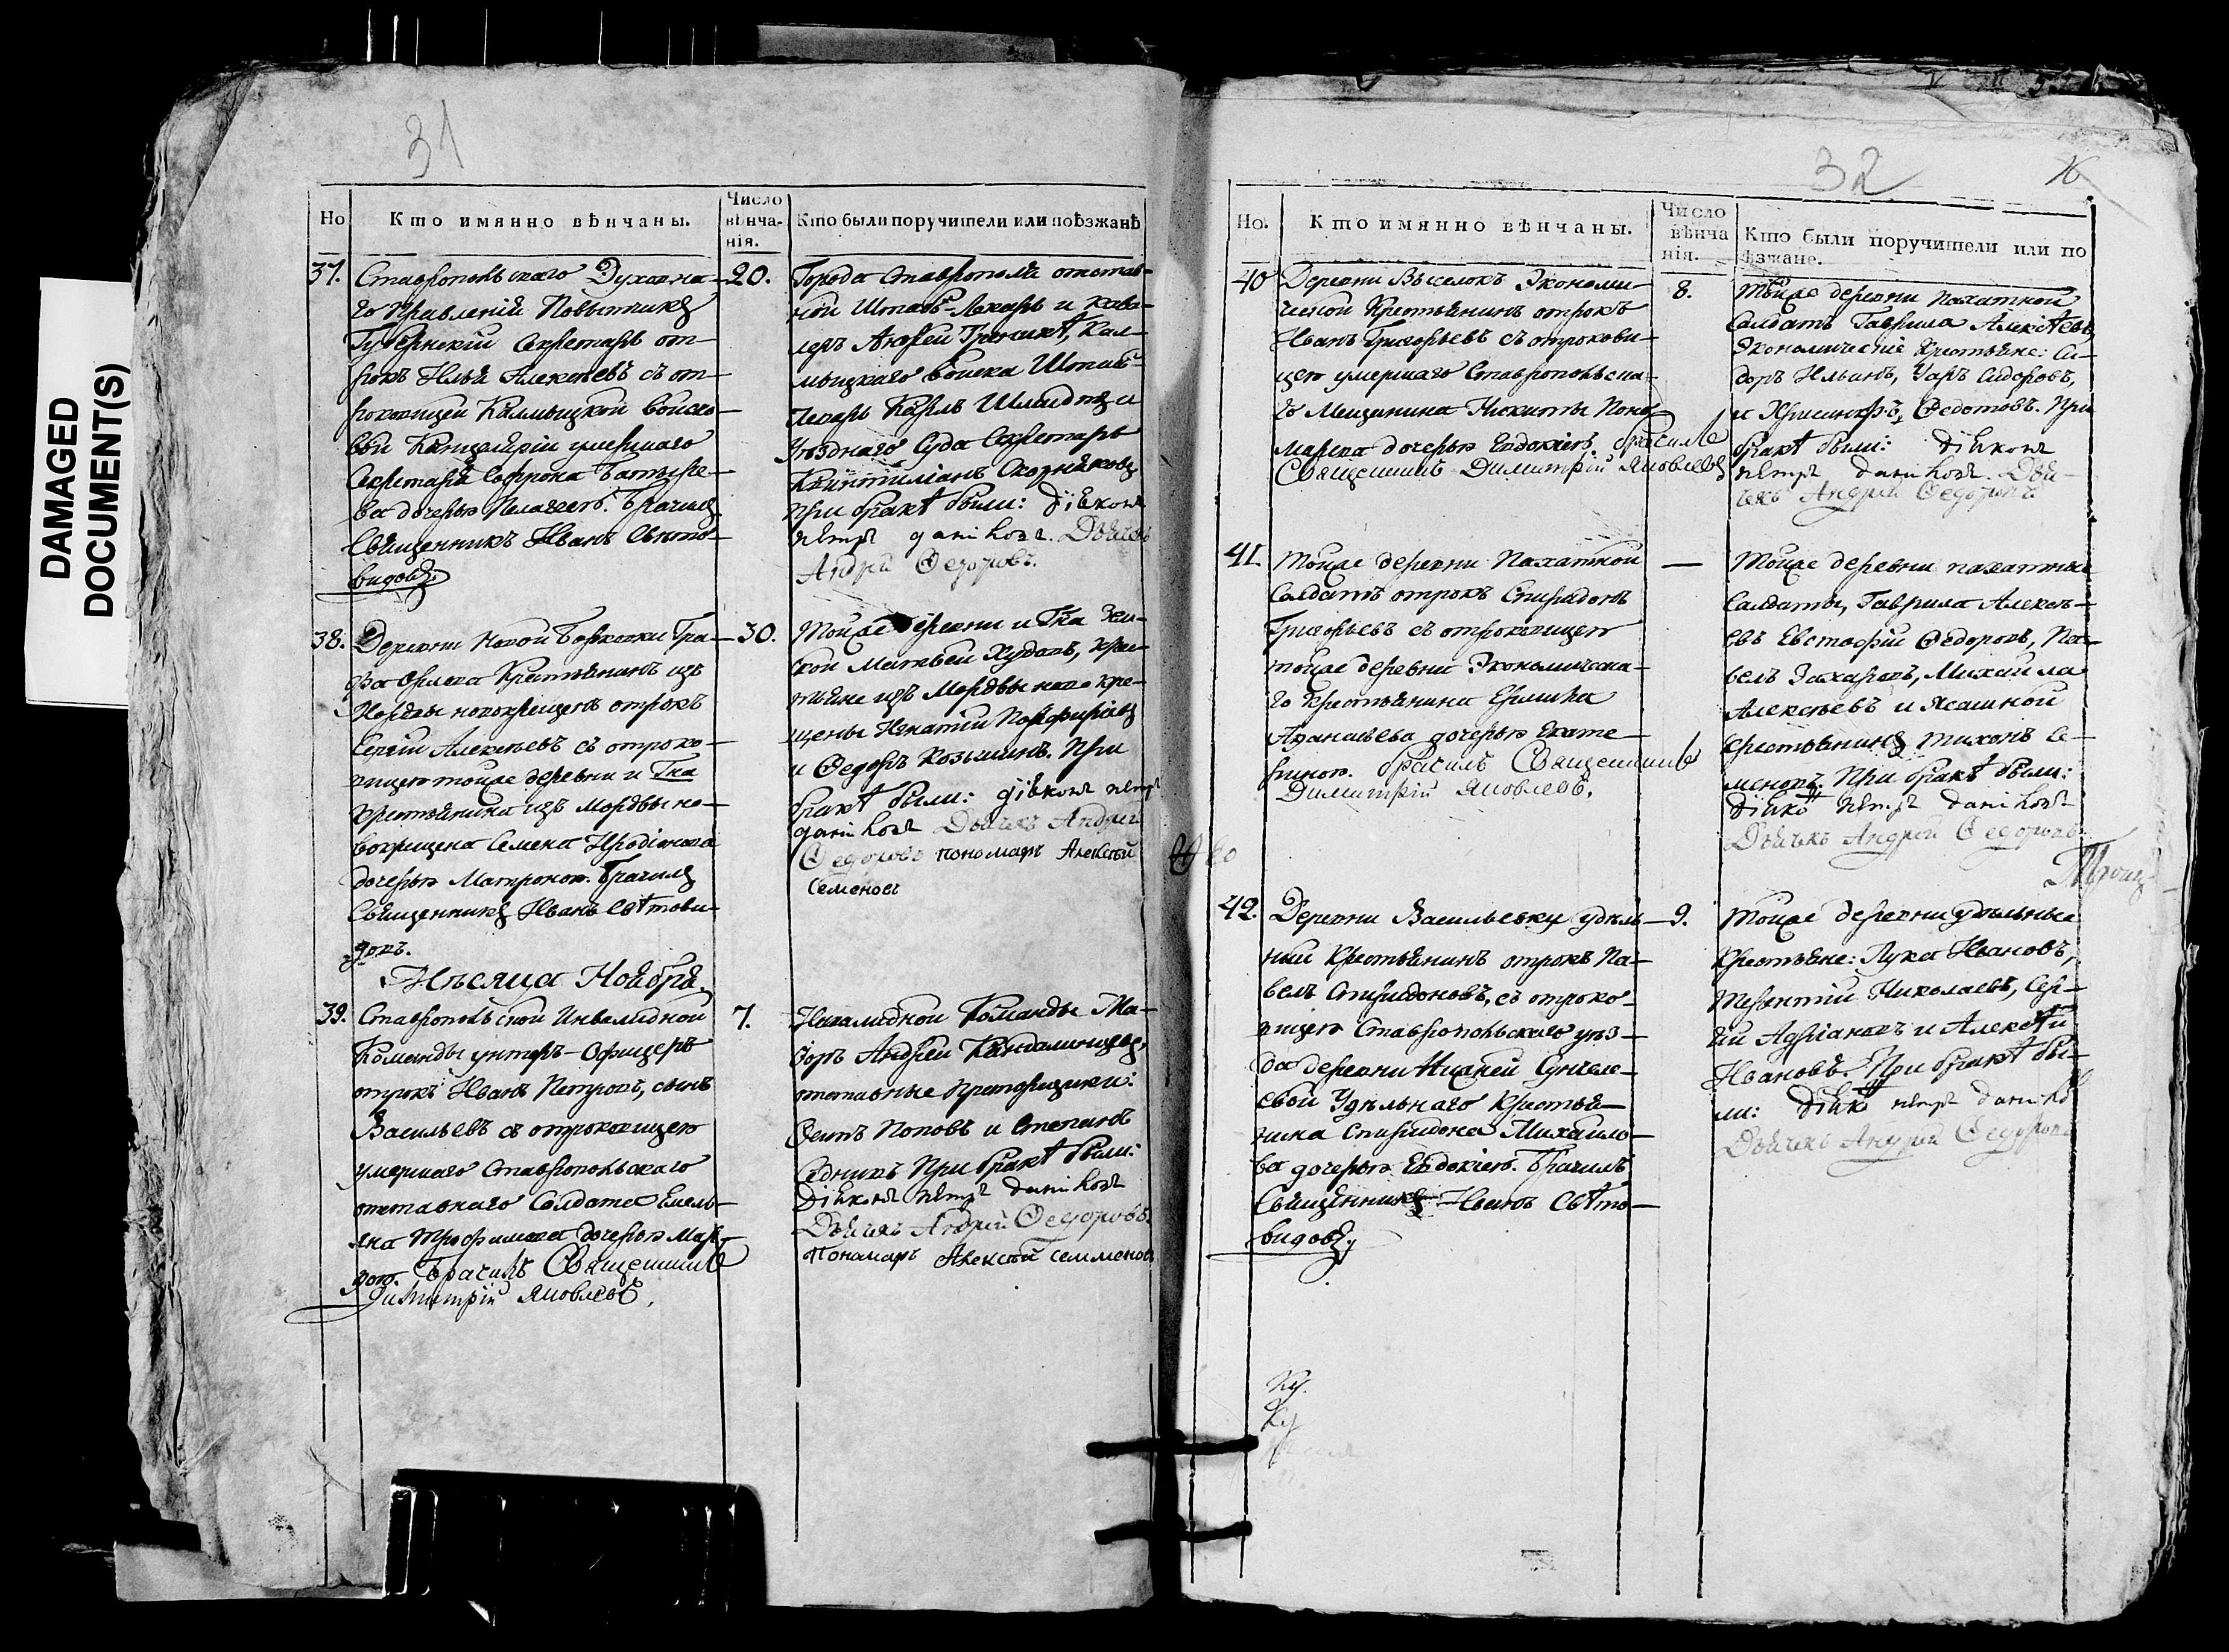 DAMAGED
DOCUMENT(S)
31
Но
Кто имянно вѣнчаны.
Число
вѣнча-
нія.
Кто были поручители или поѣзжанѣ
37.
Ставропольскаго Духовна-
го Правленія Повытчикъ
Губернскій Секретарь от-
рокъ Илья Алексѣевъ съ от-
роковицей Калмыцкой войско-
вой Канцеляріи умершаго
Секретаря Софрона
ва дочерью Пелагеею. Брачилъ
Священникъ Иванъ Свѣто-
видовъ.
20.
Города Ставрополя отстав-
ной Штабъ-Лекарь и кава-
леръ Андрей, Кал-
мыцкаго войска Штабъ-
Лекарь Карлъ и
Уѣзднаго Суда Секретарь
Скорняковъ
при бракѣ были: діѣконъ
пѣтръ Дьячекъ
Андрей Ѳедоровъ.
38.
Деревни Новой Борковки Гра-
фа Орлова Крестьянинъ изъ
Мордвы новокрещенъ отрокъ
Сергій Алексѣевъ съ отроко-
вицею тойже деревни и Гна
крестьянина изъ мордвы но-
вокрещена Семена Иродіонова
дочерью Матроною. Брачилъ
Священникъ Иванъ Свѣтови-
довъ.
30.
Тойже деревни и Гна Зем-
ской Матвей Худовъ, крес-
тьяне изъ Мордвы ново кре-
щены Игнатій Порфирьевъ
и Ѳедоръ Козьминъ. При
бракѣ были: діѣконъ пѣтръ
Дьячекъ Андрей
Ѳедоровъ пономарь Алексѣй
Семеновъ
Мѣсяца Ноября.
39.
Ставропольской Инвалидной
Команды унтеръ-Офицеръ
отрокъ Иванъ Петровъ, сынъ
Васильевъ съ отроковицею
умершаго Ставропольскаго
отставнаго Солдата Емель-
яна Трофимова дочерью Мар-
ѳою. Брачилъ Священникъ
Димитрій Яковлевъ.
7.
Инвалидной Команды Ма-
іоръ Андрей
отставные
Осипъ Поповъ и Степанъ
При бракѣ были:
Діѣконъ пѣтръ
Дьячекъ Андрей Ѳедоровъ
Пономарь Алексѣй семменовъ
32
16
Но.
Кто имянно вѣнчаны.
Число
вѣнча
нія.
Кто были поручители или по
ѣзжане.
40
Деревни Выселокъ Экономи-
ческой Крестьянинъ отрокъ
Иванъ Григорьевъ съ отрокови-
цею умершаго Ставропольска-
го Мещанина Никиты Поно-
марева дочерью Евдокіею. брачилъ
Священникъ Димитрій Яковлевъ
8.
Тойже деревни пахатной
Салдатъ Гаврила Алексѣевъ,
Экономическіе Крестьяне: Си-
доръ Ильинъ, Уаръ Сидоровъ,
и Ѳедотовъ. При
бракѣ были: діѣконъ
пѣтръ Дья-
чекъ Андрей Ѳедоровъ
41.
Тойже деревни Пахатной
Салдатъ отрокъ Спиридонъ
Григорьевъ съ отроковицею
тойже деревни Экономическа-
го крестьянина Ермила
Афанасьева дочерью Екате-
риною. брачилъ Священникъ
Димитрій Яковлевъ.
—
Тойже деревни пахатные
Салдаты, Гаврила Алексѣ-
евъ Евстафій Ѳедоровъ, Па-
велъ Захаровъ, Михайла
Алексѣевъ и Ясашной
крестьянинъ тихонъ Се-
меновъ. При бракѣ были:
Діѣкъ пѣтръ
Дьячекъ Андрей Ѳедоровъ
42.
Деревни Васильевки удѣль-
ный Крестьянинъ отрокъ Па-
велъ Спиридоновъ, съ отроко-
вицею Ставропольскаго уѣз-
да деревни Нижней Сунчеле-
евой Удѣльнаго Крестья-
нина Спиридона Михайло-
ва дочерью Евдокіею. Брачилъ
Священникъ Иванъ Свѣто-
видовъ.
9.
Тойже деревни удѣльные
Крестьяне: Лука Ивановъ,
Терентій Николаевъ, Сер-
гѣй Адріановъ и Алексѣй
Ивановъ. При бракѣ бы-
ли: Діѣкъ пѣтръ
Дьячекъ Андрей Ѳедоровъ